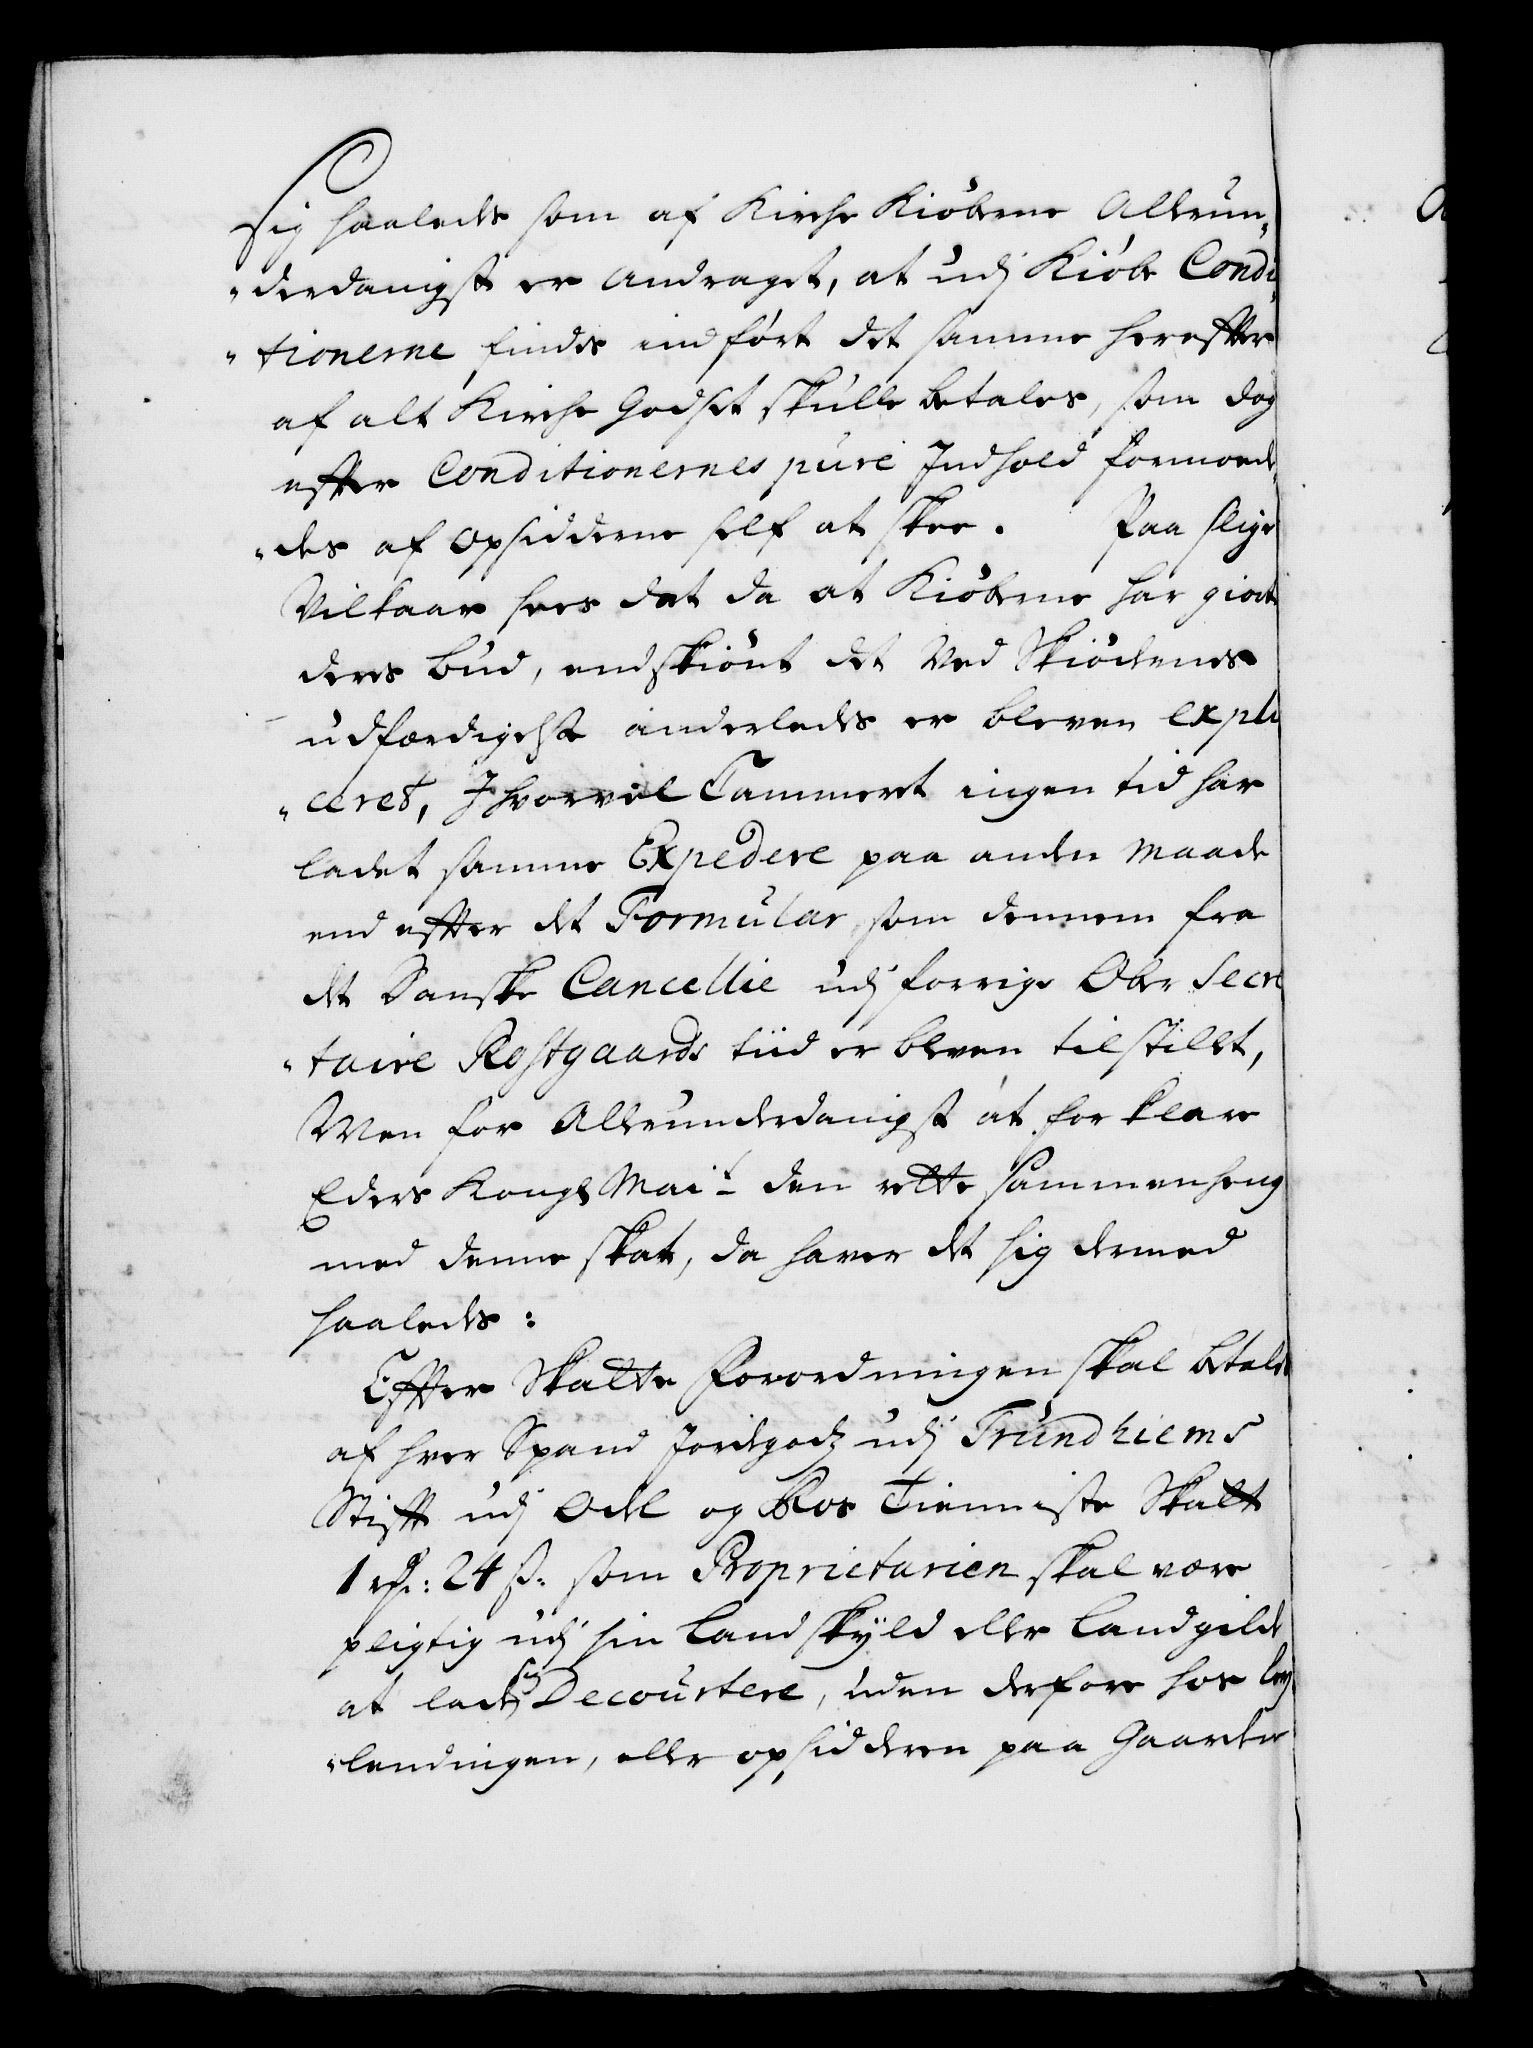 sig saaledes som af Kirche Kiøberne Allerun¬
"derdanigst er andraget, at udj Kiøbe Condi
"tionerne findes indført det samme herefter
af alt Kirche Godset skulle betales, som dog
efter Conditionernes pure Indhold formoed
"des af Opsidderne self at skee. Paa slige
Vilkaar sees det da at Kiøberne har giort
deres bud, endskiønt det ved Skiødernes
udfærdigelse anderledes er bleven expli
"ceret, Ihvorvel Cammeret ingen tid har
ladet samme Expedere paa anden maade
end efter det Formular som dennem fra
det Danske Cancellie udj forrige Ober Secre
"taire Rostgaards tiid er bleven tilstillet,
Men for Allerunderdanigst at forklare
Eders Kongl Mait den rette sammenheng
med denne skat, da haver det sig dermed
saaledes:
Efter Skatte Forordningen skal betales
af hver Spand Jordegods udj Trundhiems
Stift udj Odel og Ros Tienniste Skatt
1 rdr: 24 s. som Proprietarien skal være
pligtig udj sin Landskyld eller Landgilde
at lade sig Decourtere, uden derfore hos Ley
"lendingen, eller opsidderen paa Gaarden